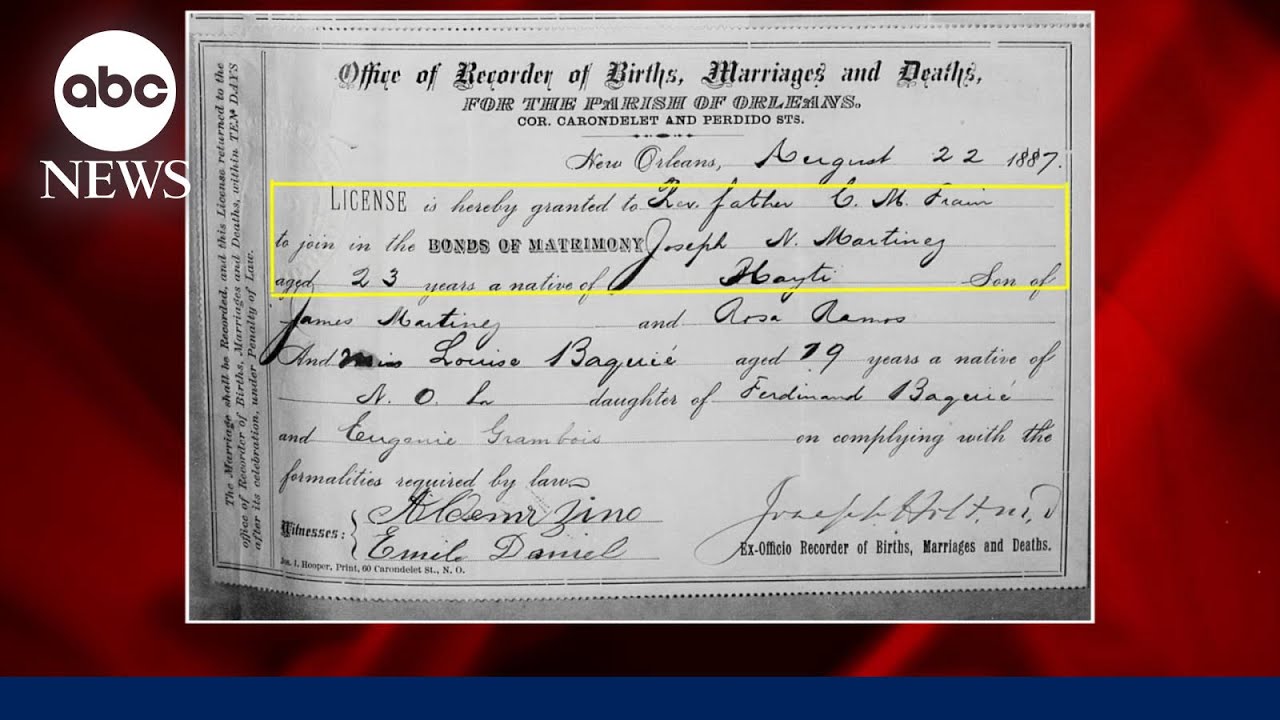 abc
NEWS
Office of Recorder of Births, Marriages and Deaths,
FOR THE PARISH OF ORLEANS.
COR. CARONDELET AND PERDIDO STS.
New Orleans, August 22 1887.
LICENSE is hereby granted to Rev. father C. M.
to join in the BONDS OF MATRIMONY Joseph N. Martinez
aged 23 years a native of Hayti Son of
James Martinez and Rosa Ramos
And Miss Louise Baquié aged 19 years a native of
N. O. La daughter of Ferdinand Baquié
and Eugenie Grambois on complying with the
formalities required by law
Witnesses:
Zino
Emile Daniel
Joseph Holt M.D
Ex-Officio Recorder of Births, Marriages and Deaths.
Jas. I. Hooper, Print, 60 Carondelet St., N. O.
The Marriage shall be Recorded, and this License returned to the
office of Recorder of Births, Marriages and Deaths, within TEN DAYS
after its celebration, under Penalty of Law.